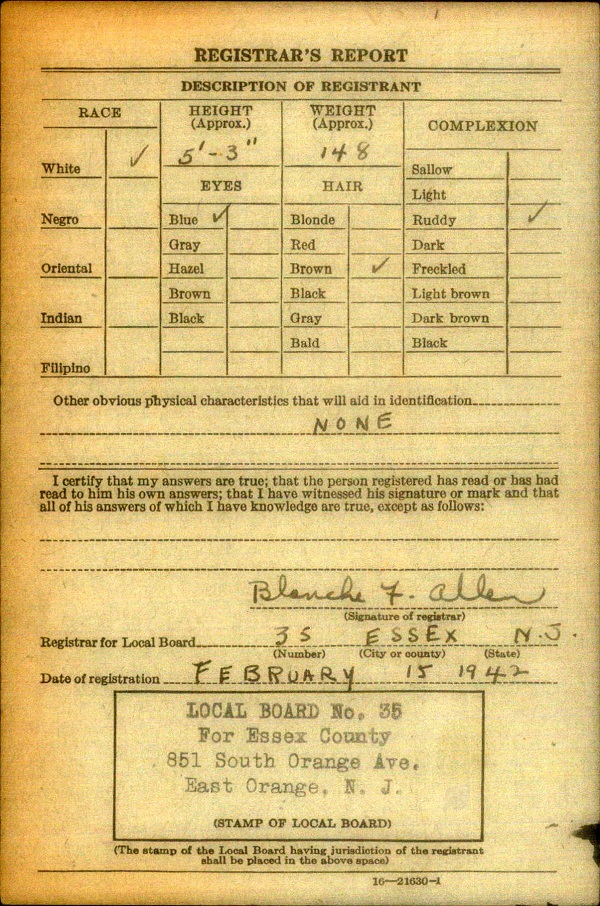 REGISTRAR'S REPORT
DESCRIPTION OF REGISTRANT
RACE
HEIGHT
(Approx.)
WEIGHT
(Approx.)
COMPLEXION
5'-3"
148
White ✓
Sallow
EYES
HAIR
Light
Negro
Blue ✓
Blonde
Ruddy ✓
Gray
Red
Dark
Oriental
Hazel
Brown ✓
Freckled
Brown
Black
Light brown
Indian
Black
Gray
Dark brown
Bald
Black
Filipino
Other obvious physical characteristics that will aid in identification
NONE
I certify that my answers are true; that the person registered has read or has had
read to him his own answers; that I have witnessed his signature or mark and that
all of his answers of which I have knowledge are true, except as follows:
Blanche F. Allen
(Signature of registrar)
Registrar for Local Board 35 ESSEX N.J.
(Number) (City or county) (State)
Date of registration FEBRUARY 15 1942
LOCAL BOARD No. 35
For Essex County
851 South Orange Ave.
East Orange, N. J.
(STAMP OF LOCAL BOARD)
(The stamp of the Local Board having jurisdiction of the registrant
shall be placed in the above space)
16—21630-1